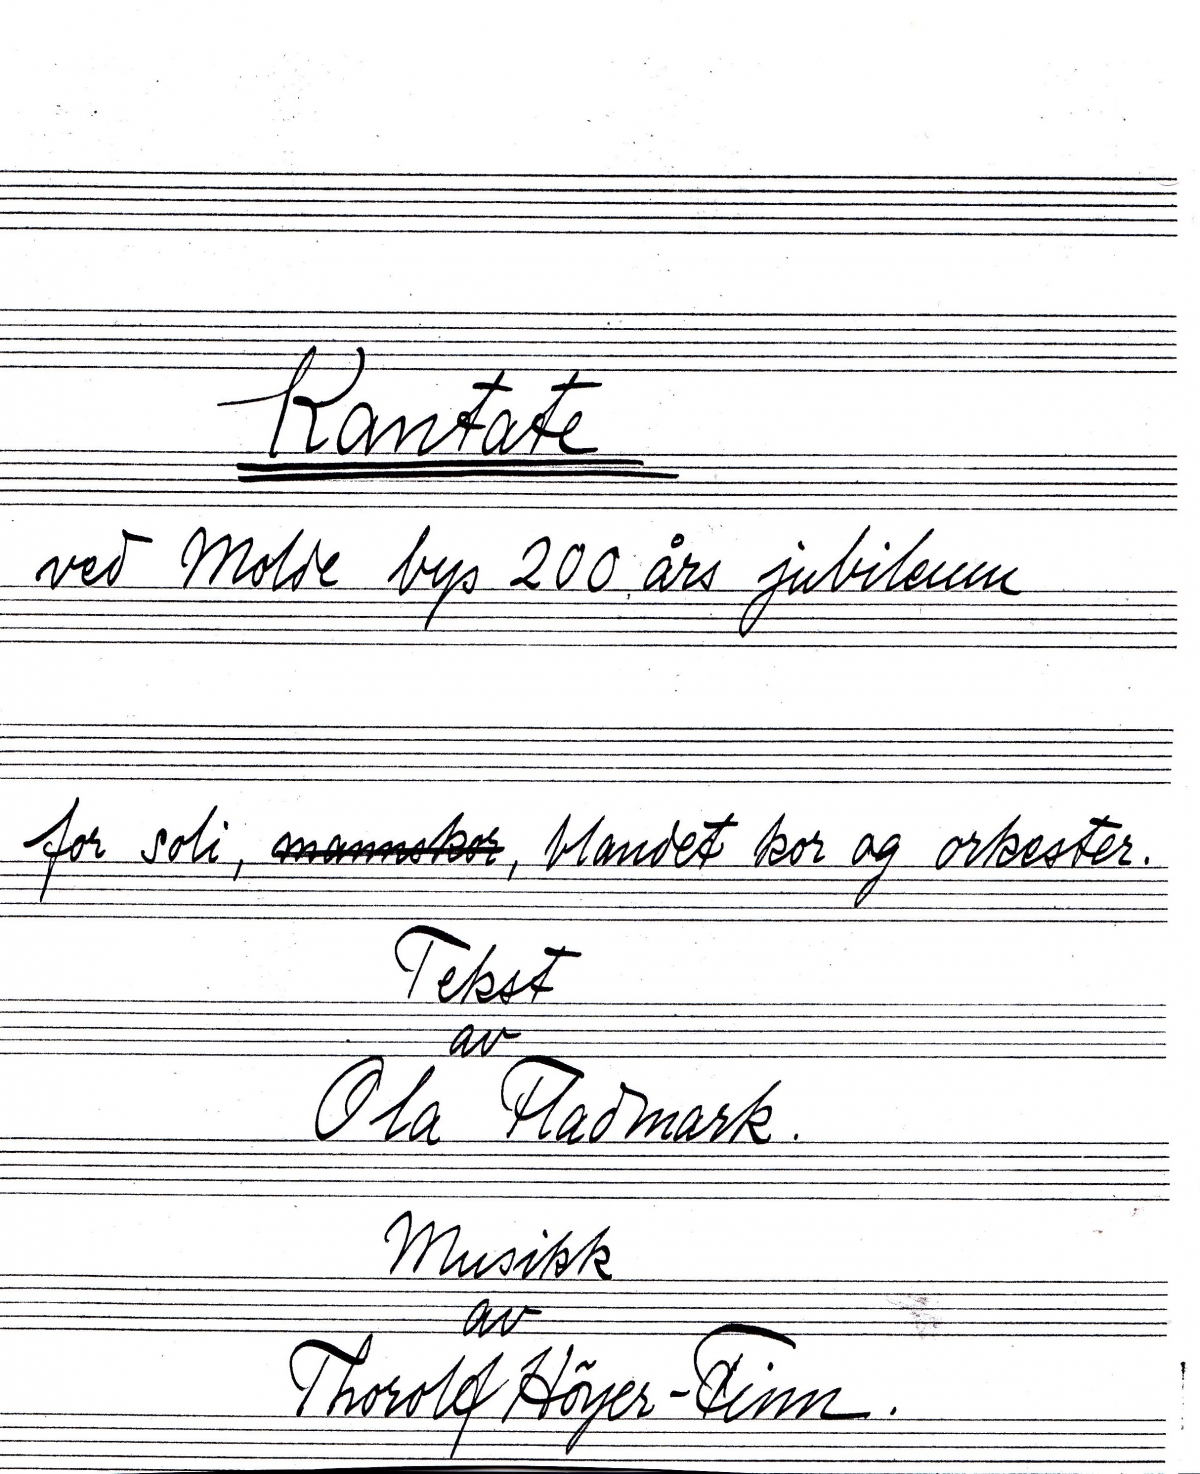 Kantate
ved Molde bys 200 års jubileum
for soli, mannskor, blandet kor og orkester.
Tekst
av
Ola Fladmark.
Musikk
av
Thorolf Höyer-Finn.